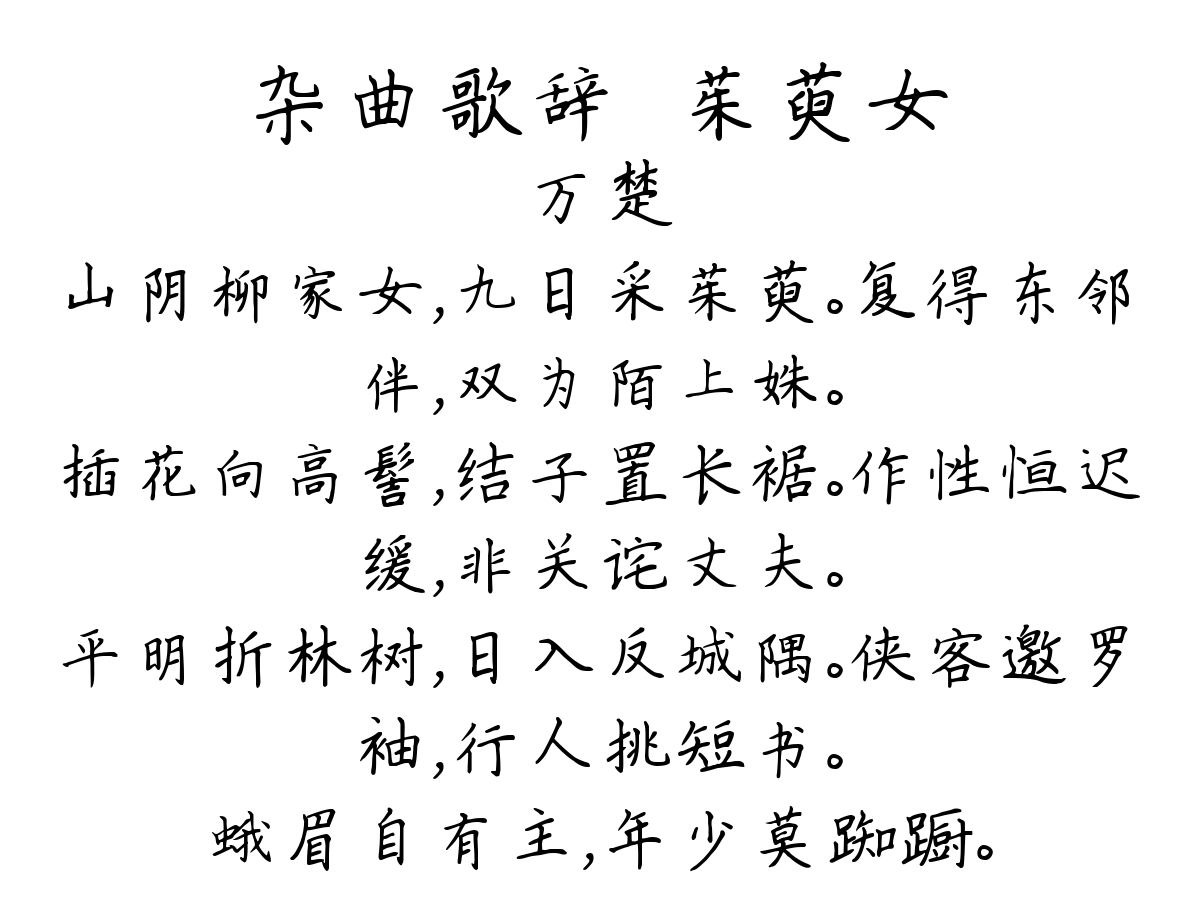 杂曲歌辞 茱萸女
万楚
山阴柳家女,九日采茱萸。复得东邻
伴,双为陌上姝。
插花向高髻,结子置长裾。作性恒迟
缓,非关诧丈夫。
平明折林树,日入反城隅。侠客邀罗
袖,行人挑短书。
蛾眉自有主,年少莫踟蹰。